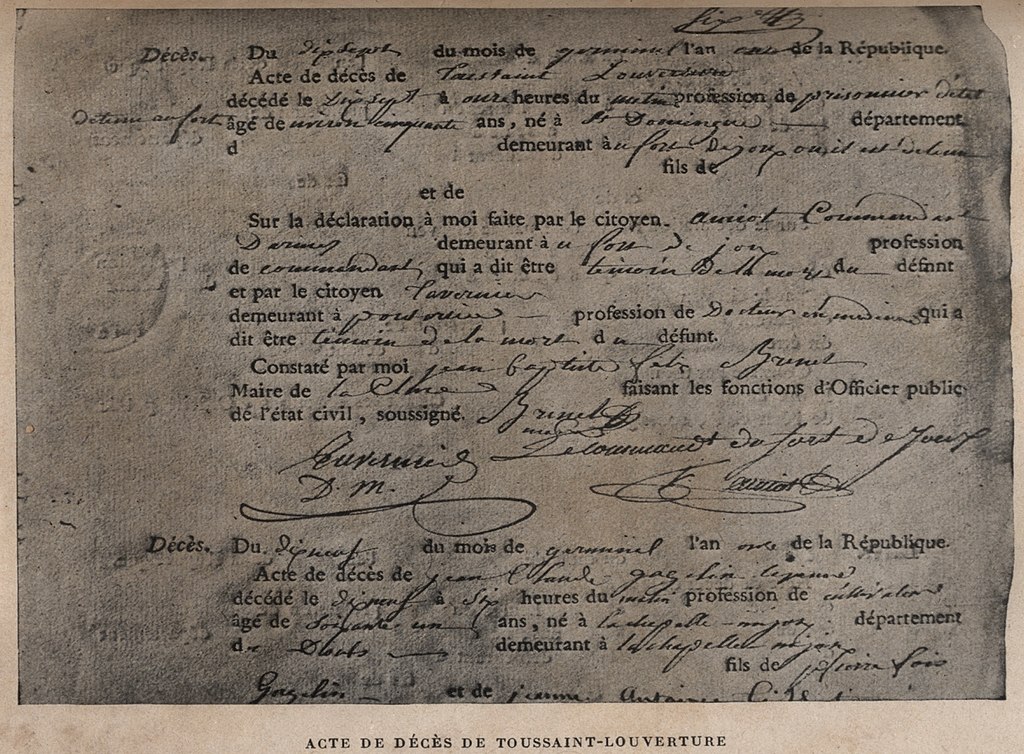 Décès. Du dix sept du mois de germinal l'an onze de la République.
Acte de décès de Toussaint Louverture
décédé le Dix sept à onze heures du matin profession de prisonnier
detenu au fort âgé de environ cinquante ans, né à St Domingue département
d demeurant à u fort De joux ou il est detenu
fils de
et de
Sur la déclaration à moi faite par le citoyen amiot Commandant
Darmes demeurant à u fort de joux profession
de commandant qui a dit être témoin De la mort du défunt
et par le citoyen Tavernier
demeurant à pontarlier profession de Docteur en medecine qui a
dit être témoin de la mort du défunt.
Constaté par moi jean baptiste Brunet
Maire de la Cluse faisant les fonctions d'Officier public
de l'état civil, soussigné. Brunet
Tavernier Le commandt du fort de Joux
D. M. amiot
Décès. Du dix neuf du mois de germinal l'an onze de la République.
Acte de décès de jean Claude gagelin
décédé le dix neuf à Six heures du matin profession de cultivateur
âgé de Soixante un ans, né à la chapelle mijoux département
du Doubs demeurant à la chapelle mijoux
fils de pierre
Gagelin et de jeanne Antoine
ACTE DE DÉCÈS DE TOUSSAINT-LOUVERTURE